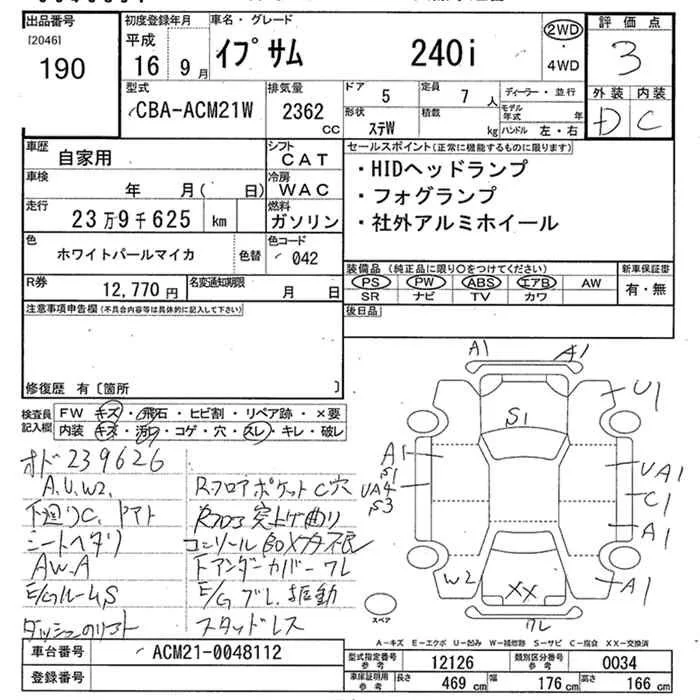 出品番号
[2046]
190
初度登録年月
平成
16 9月
車名・グレード
イプサム 240i
2WD
・
4WD
評価点
3
外装 内装
D C
型式
CBA-ACM21W
排気量
2362
CC
ドア 5
定員 7 人
形状 ステW
積載 kg
ディーラー・並行
モデル年式 年
ハンドル 左・右
車歴
自家用
シフト
CAT
車検
年 月( 日)
冷房
WAC
走行
23万9千625 km
燃料
ガソリン
色
ホワイトパールマイカ
色替
色コード
042
R券
12,770円
名変通知期限
月 日
セールスポイント(正常に機能するものに限ります)
・HIDヘッドランプ
・フォグランプ
・社外アルミホイール
装備品 (純正品に限り○をつけてください)
PS PW ABS エアB AW
SR ナビ TV カワ
新車保証書
有・無
後日品
注意事項申告欄(不具合内容等は具体的に記入して下さい)
修復歴 有〔箇所 〕
検査員記入欄
FW キズ・飛石・ヒビ割・リペア跡・×要
内装 キズ・汚れ・コゲ・穴・スレ・キレ・破レ
オド239626
A.U.W2.
下廻りC.
シートヘタリ
AW.A
E/GルームS
Rフロアポケット C穴
Rフロア突上ゲ曲リ
コンソールBOXフタ不良
Fアンダーカバーワレ
E/Gブレ.振動
スタッドレス
A1 A1
U1
S1
A1
S1
UA4
S3
UA1
C1
A1
W2
XX
A1
ワレ
スペア
A−キズ E−エクボ U−凹み W−補修跡 S−サビ C−腐食 XX−交換済
車台番号
ACM21-0048112
登録番号
型式指定番号参考
12126
類別区分番号参考
0034
車庫証明用参考
長さ 469 cm
幅 176 cm
高さ 166 cm